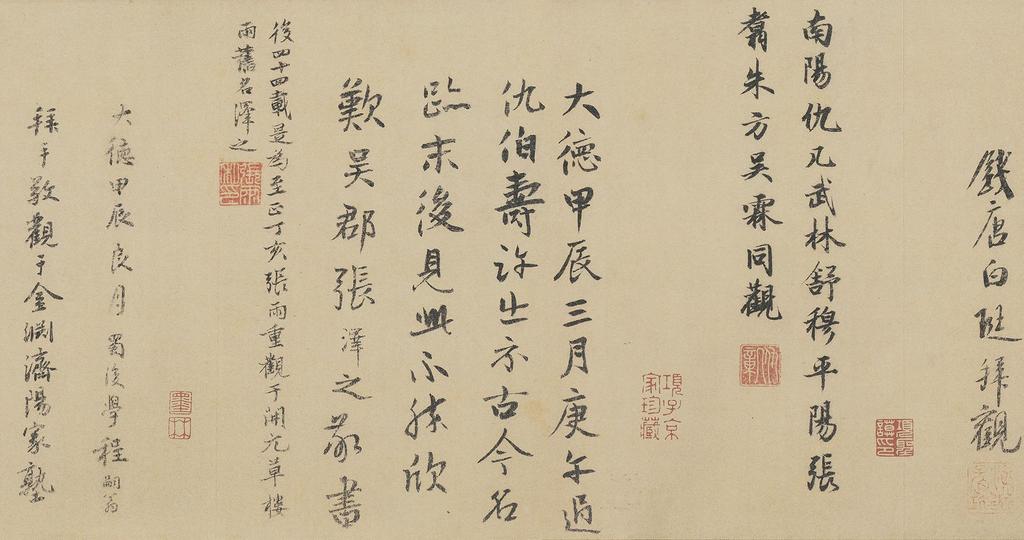 錢唐白珽拜觀
南陽仇几武林舒穆平陽張
翥朱方吳霖同觀
大德甲辰三月庚午過
仇伯壽許出示古今名
跡末後見此不勝欣
歎吳郡張澤之敬書
後四十四載是為至正丁亥張雨重觀于開元草樓
雨舊名澤之
大德甲辰良月蜀後學程嗣翁
拜手敬觀于金淵濟陽家塾
項子京
家珍藏
墨林